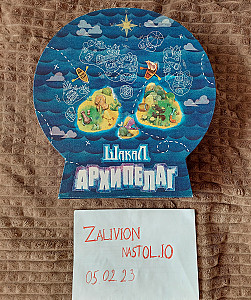 Шакал
АРХИПЕЛАГ
ZALIVION
NASTOL.IO
05 02 23